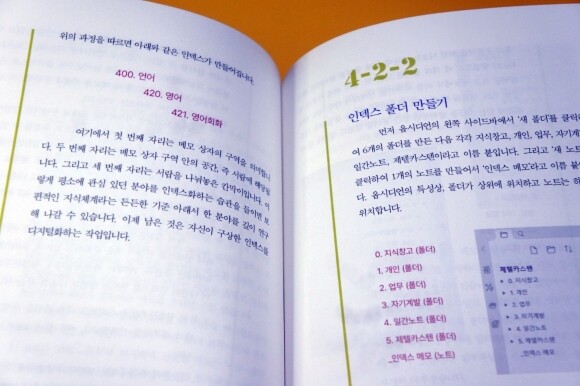 위의 과정을 따르면 아래와 같은 인덱스가 만들어집니다.
400. 언어
420. 영어
421. 영어회화
여기에서 첫 번째 자리는 메모 상자의 구역을 의미합니
다. 두 번째 자리는 메모 상자 구역 안의 공간, 즉 서랍에 해당됩
니다. 그리고 세 번째 자리는 서랍을 나눠놓은 칸막이입니다. 이
렇게 평소에 관심 있던 분야를 인덱스화하는 습관을 들이면 보
편적인 지식체계라는 든든한 기준 아래서 한 분야를 깊이 연구
해 나갈 수 있습니다. 이제 남은 것은 자신이 구상한 인덱스를
디지털화하는 작업입니다.
4-2-2
인덱스 폴더 만들기
먼저 옵시디언의 왼쪽 사이드바에서 '새 폴더'를 클릭
여 6개의 폴더를 만든 다음 각각 지식창고, 개인, 업무, 자기계
일간노트, 제텔카스텐이라고 이름 붙입니다. 그리고 '새 노트
클릭하여 1개의 노트를 만들어서 '인덱스 메모'라고 이름 붙
다. 옵시디언의 특성상, 폴더가 상위에 위치하고 노트는 하
위치합니다.
0. 지식창고 (폴더)
1. 개인 (폴더)
2. 업무 (폴더)
3. 자기계발 (폴더)
4. 일간노트 (폴더)
5. 제텔카스텐 (폴더)
_인덱스 메모 (노트)
제텔카스텐
0. 지식창고
1. 개인
2. 업무
3. 자기계발
4. 일간노트
5. 제텔카스텐
_인덱스 메모